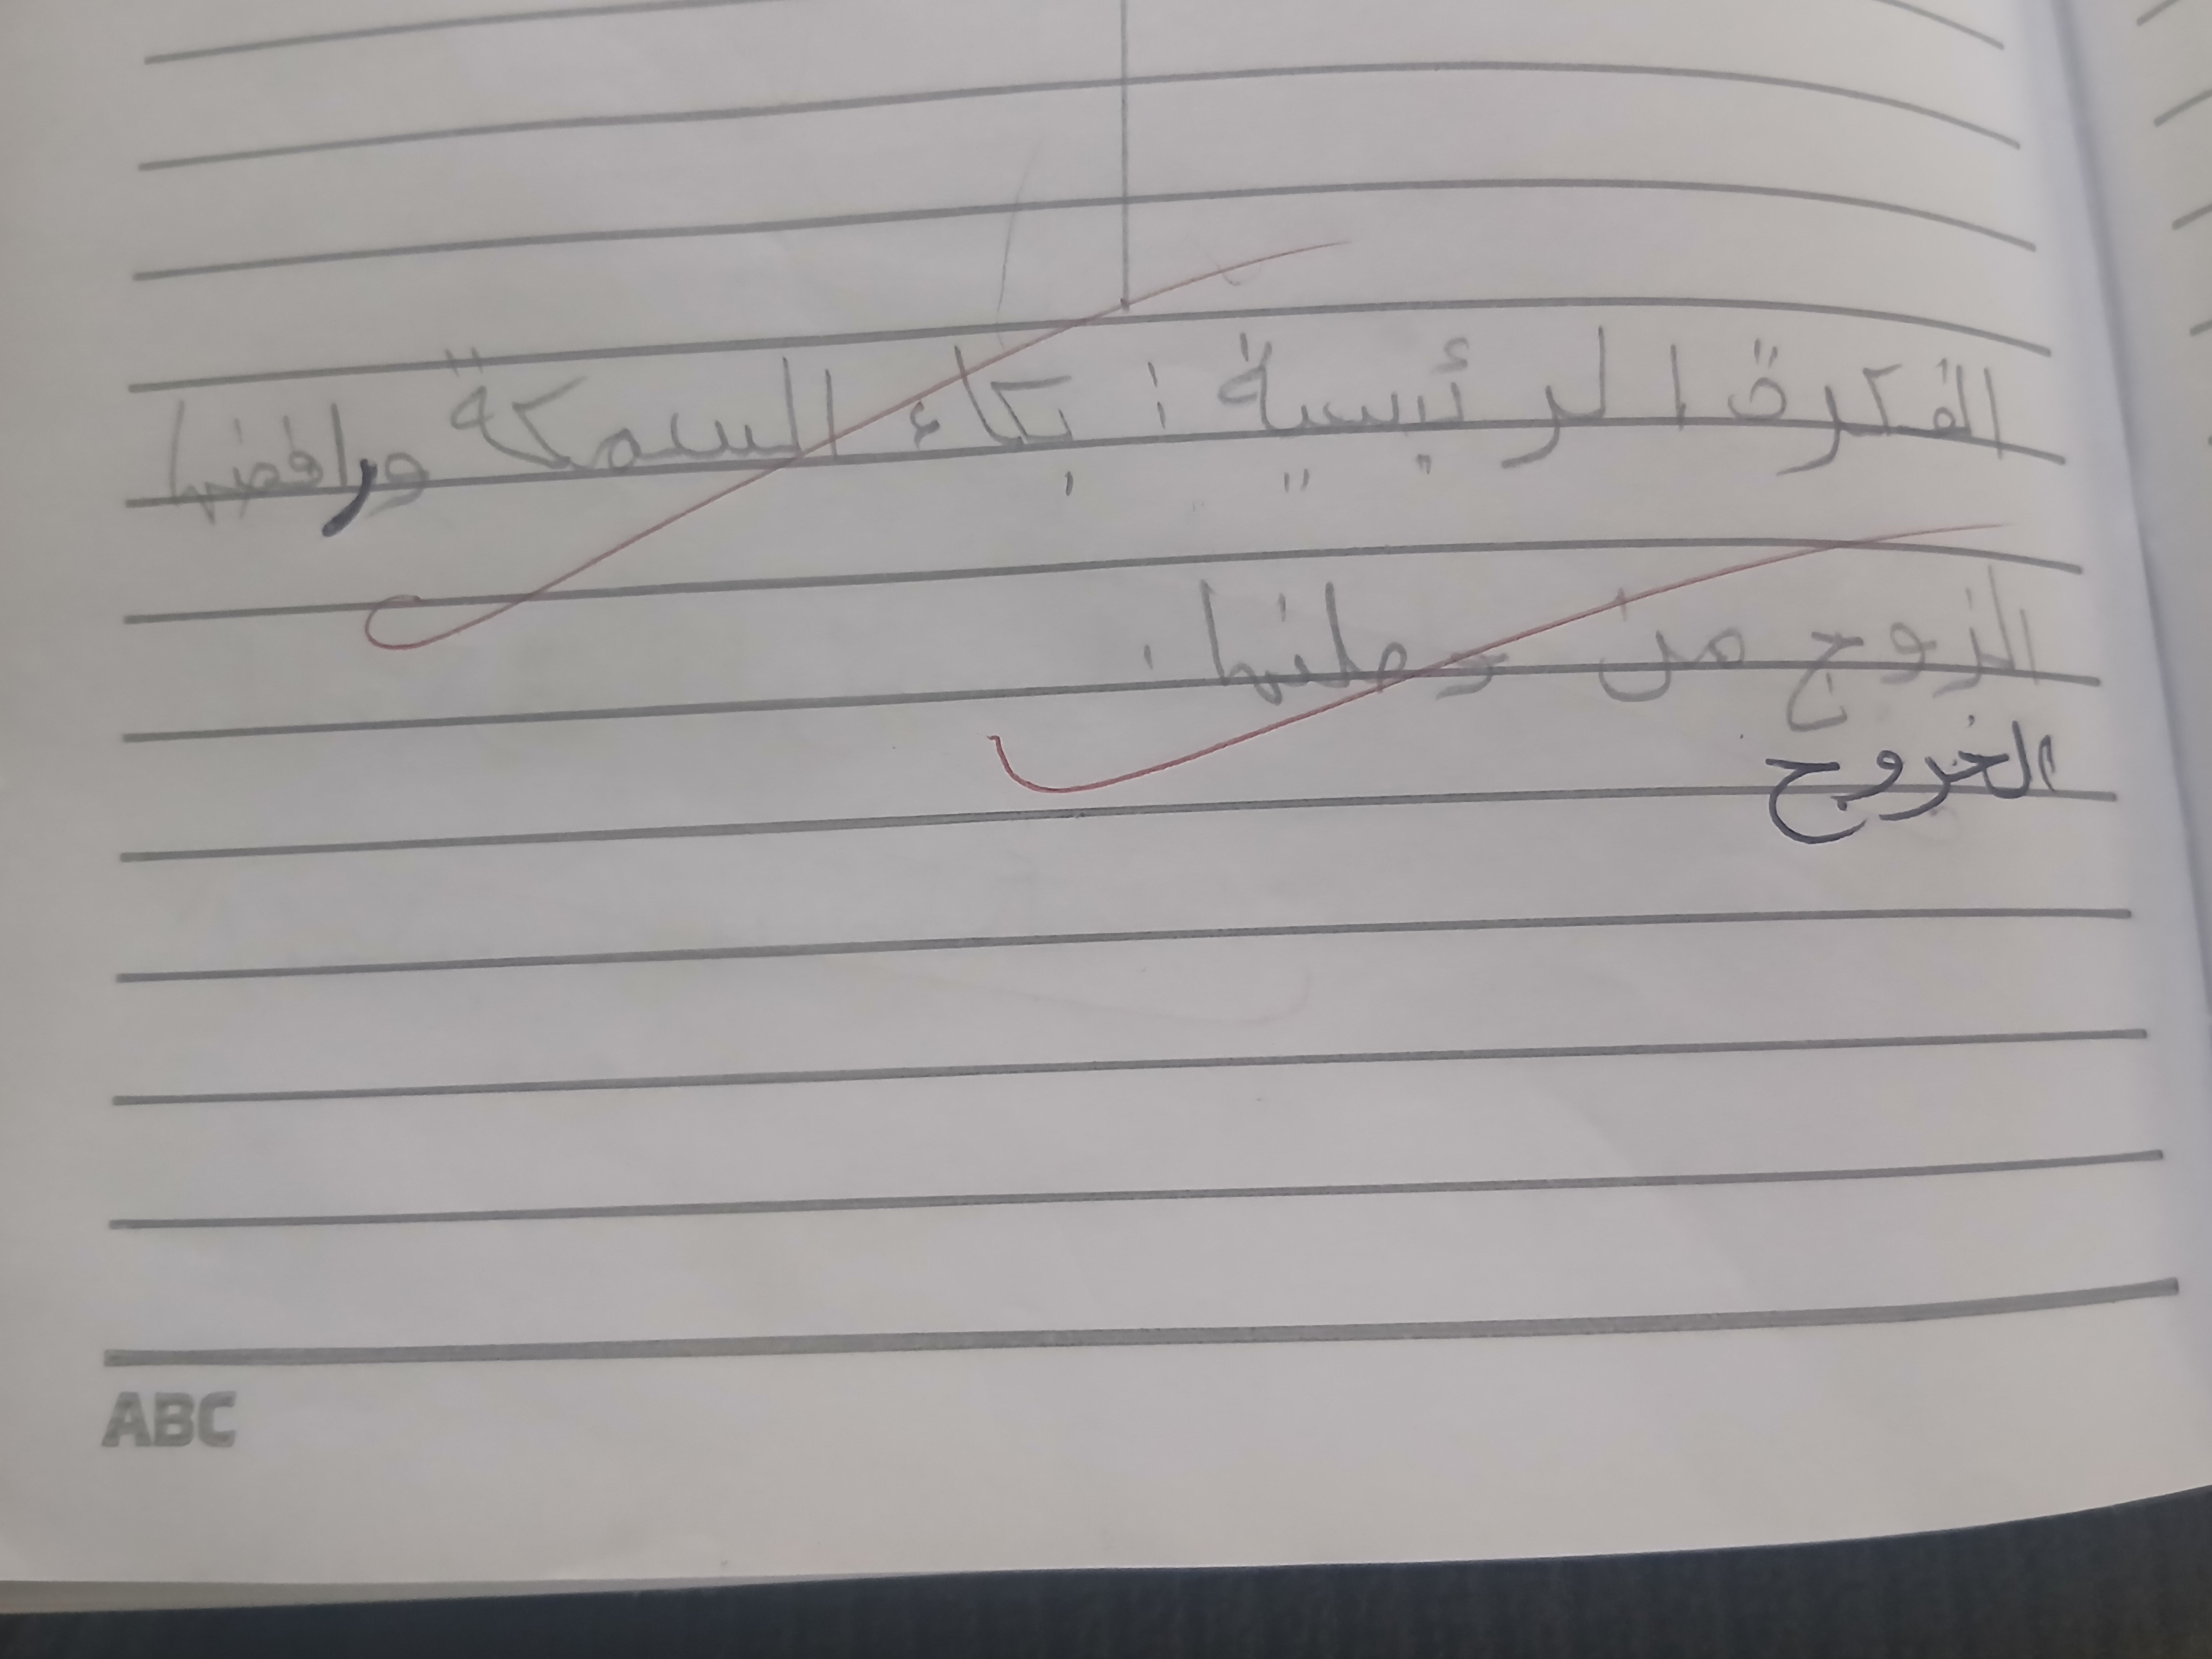 الفكرة الرئيسية : بكاء السمكة ورافضها
الزوج من وطنها .
الخروج
ABC